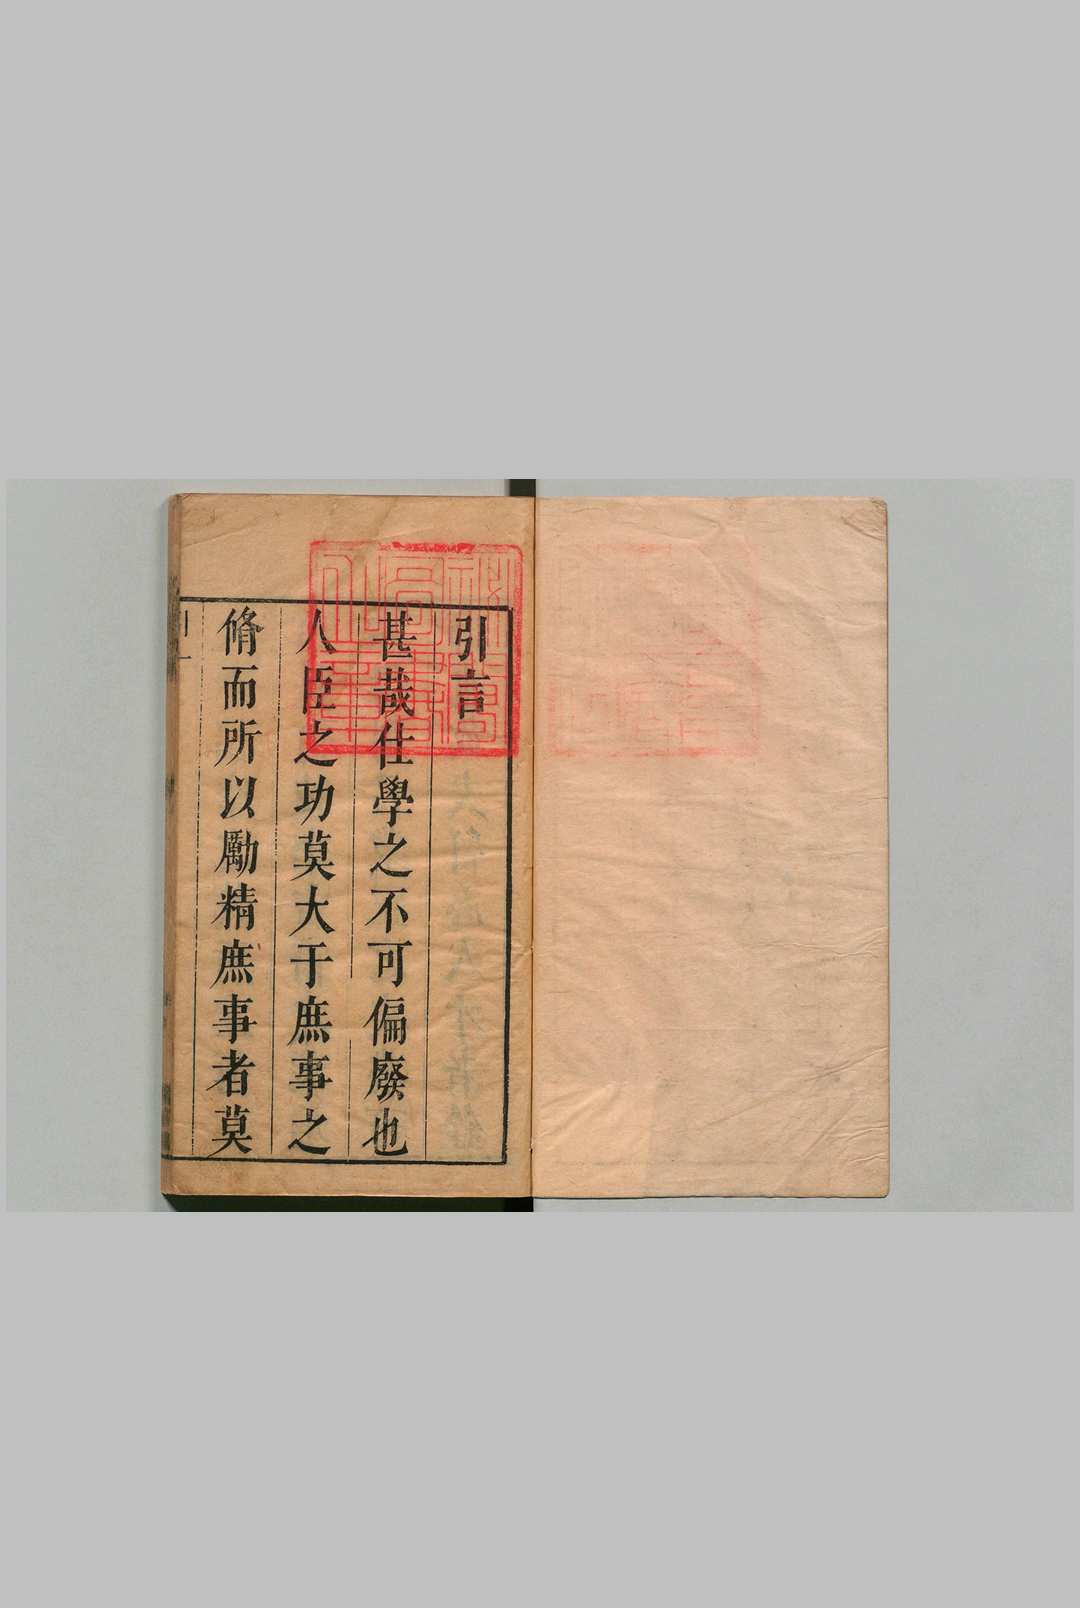 引言
甚哉仕學之不可偏廢也
人臣之功莫大于庶事之
脩而所以勵精庶事者莫